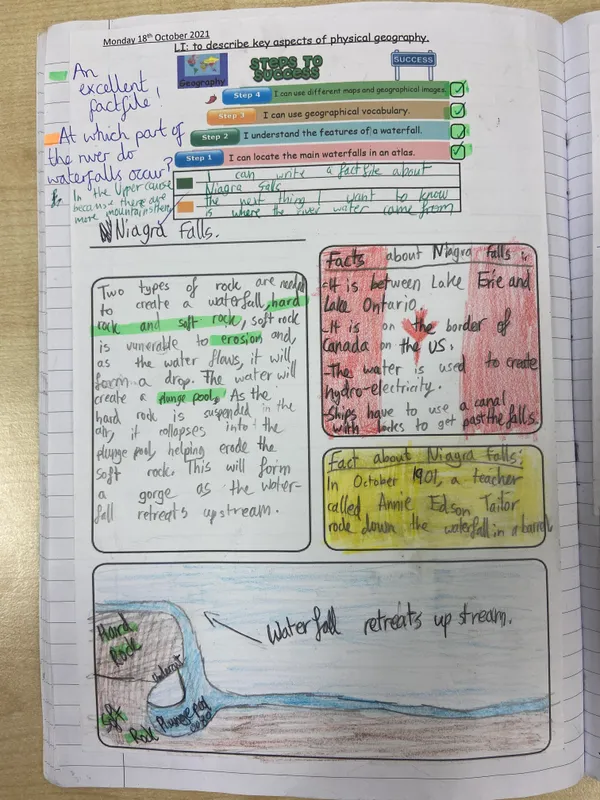 Monday 18th October 2021
LI: to describe key aspects of physical geography.
Geography
STEPS TO
SUCCESS
SUCCESS
Step 4 I can use different maps and geographical images.
Step 3 I can use geographical vocabulary.
Step 2 I understand the features of a waterfall.
Step 1 I can locate the main waterfalls in an atlas.
An
excellent
factfile!
At which part of
the river do
waterfalls occur?
In the upper cause
because there are
more mountains there
I can write a factfile about
Niagra falls
the next thing I want to know
is where the river water came from
Niagra falls.
Two types of rock are needed
to create a waterfall, hard
rock and soft rock, soft rock
is vunerable to erosion and,
as the water flows, it will
form a drop. The water will
create a plunge pool. As the
hard rock is suspended in the
air, it collapses into the
plunge pool, helping erode the
soft rock. This will form
a gorge as the water-
fall retreats upstream.
Facts about Niagra falls:
-It is between Lake Erie and
Lake Ontario.
-It is on the border of
Canada on the US.
-The water is used to create
hydro-electricity.
-Ships have to use a canal
with locks to get past the falls.
Fact about Niagra falls:
In October 1901, a teacher
called Annie Edson Tailor
rode down the waterfall in a barrel
Waterfall retreats up stream.
Hard
Rock
Undercut
Soft
Rock
Plunge pool